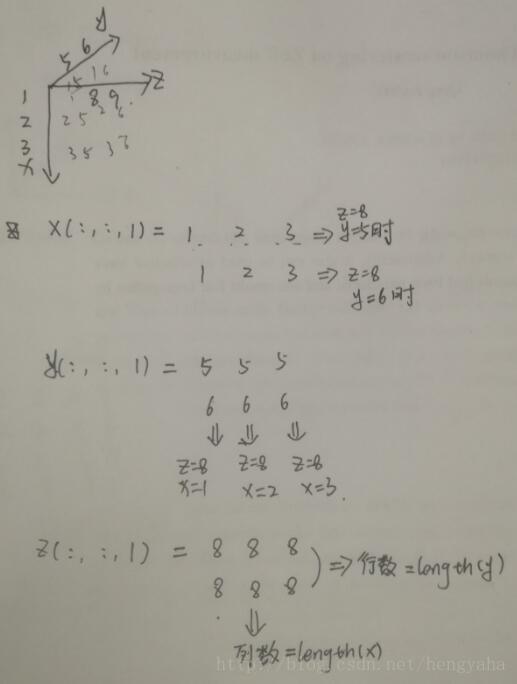 y
5 6
1 5 1 6
z
1 8 9
2 2 5 2 6
3 3 5 3 6
x
x(:, :, 1) = 1 2 3 => z=8 y=5时
1 2 3 => z=8
y=6时
y(:, :, 1) = 5 5 5
6 6 6
⇓ ⇓ ⇓
z=8 z=8 z=8
x=1 x=2 x=3.
z(:, :, 1) = 8 8 8
8 8 8 ) => 行数=length(y)
⇓
列数=length(x)
http://blog.csdn.net/hengyaha